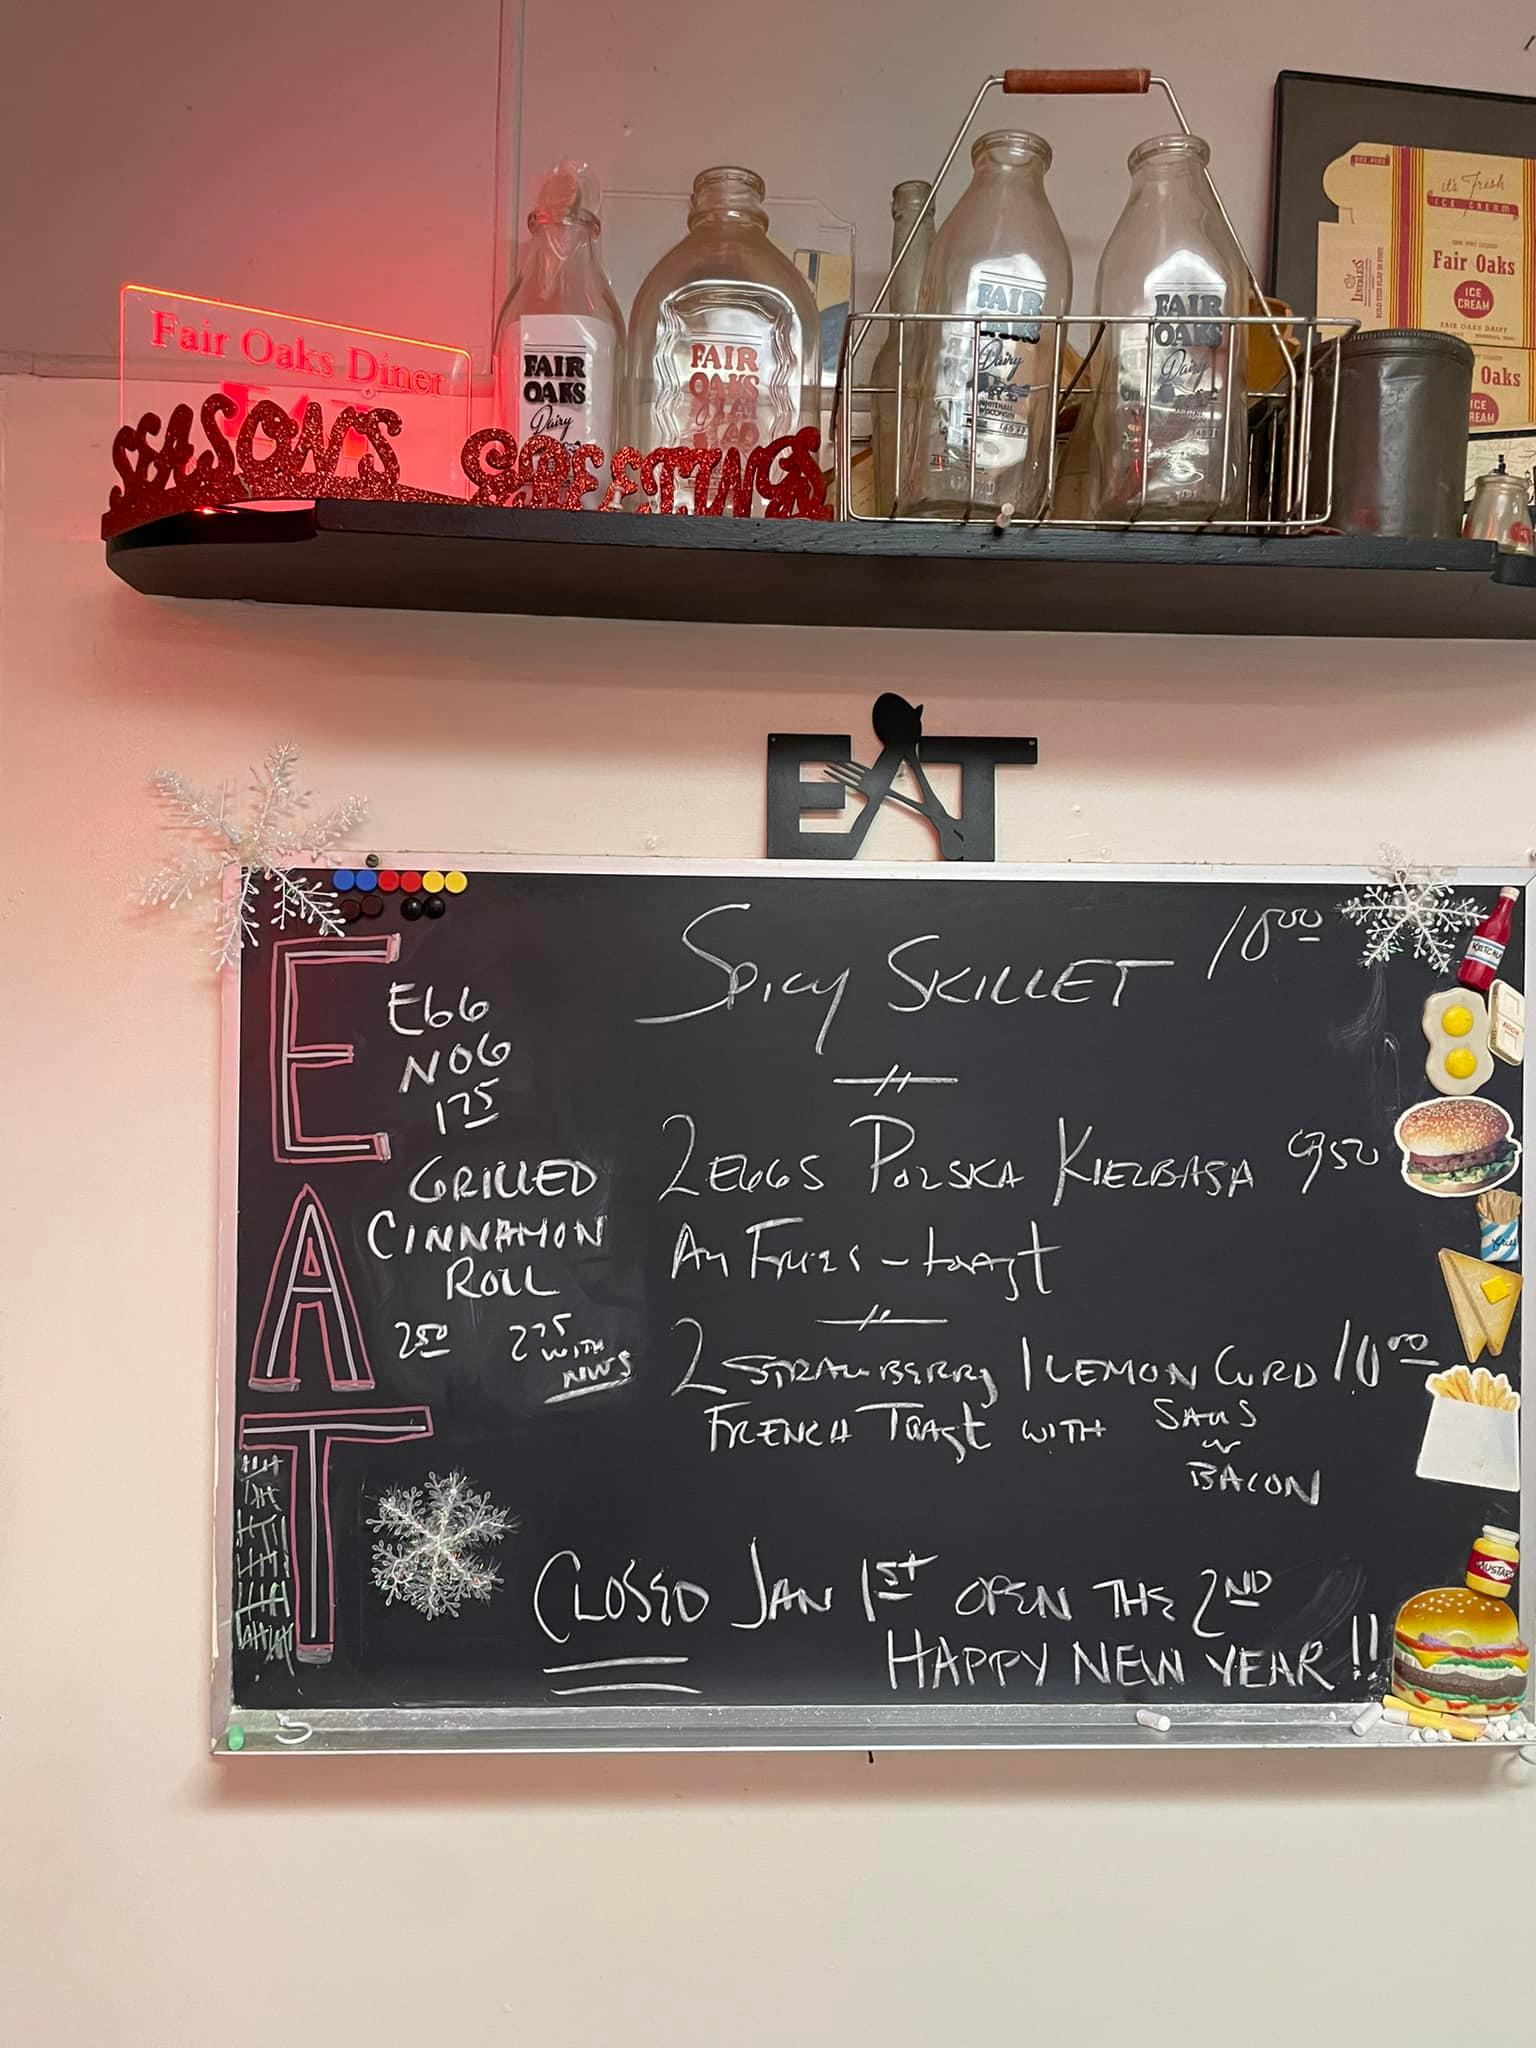 Fair Oaks Diner
EAT
SEASON'S GREETINGS
FAIR
OAKS
Dairy
FAIR
OAKS
FAIR
OAKS
Dairy
WHITEHALL
WISCONSIN
FAIR
OAKS
Dairy
it's Fresh
ICE CREAM
Fair Oaks
ICE
CREAM
FAIR OAKS DAIRY
Oaks
ICE
CREAM
EAT
EAT
EGG
NOG
1 75
GRILLED
CINNAMON
ROLL
2 50 2 75
WITH
NUTS
SPICY SKILLET 10 00
2 EGGS POLSKA KIELBASA 9 50
AM FRIES - toast
2 STRAWBERRY 1 LEMON CURD 10 00
FRENCH TOAST WITH SAUS
or
BACON
CLOSED JAN 1ST OPEN THE 2ND
HAPPY NEW YEAR !!
MUSTARD